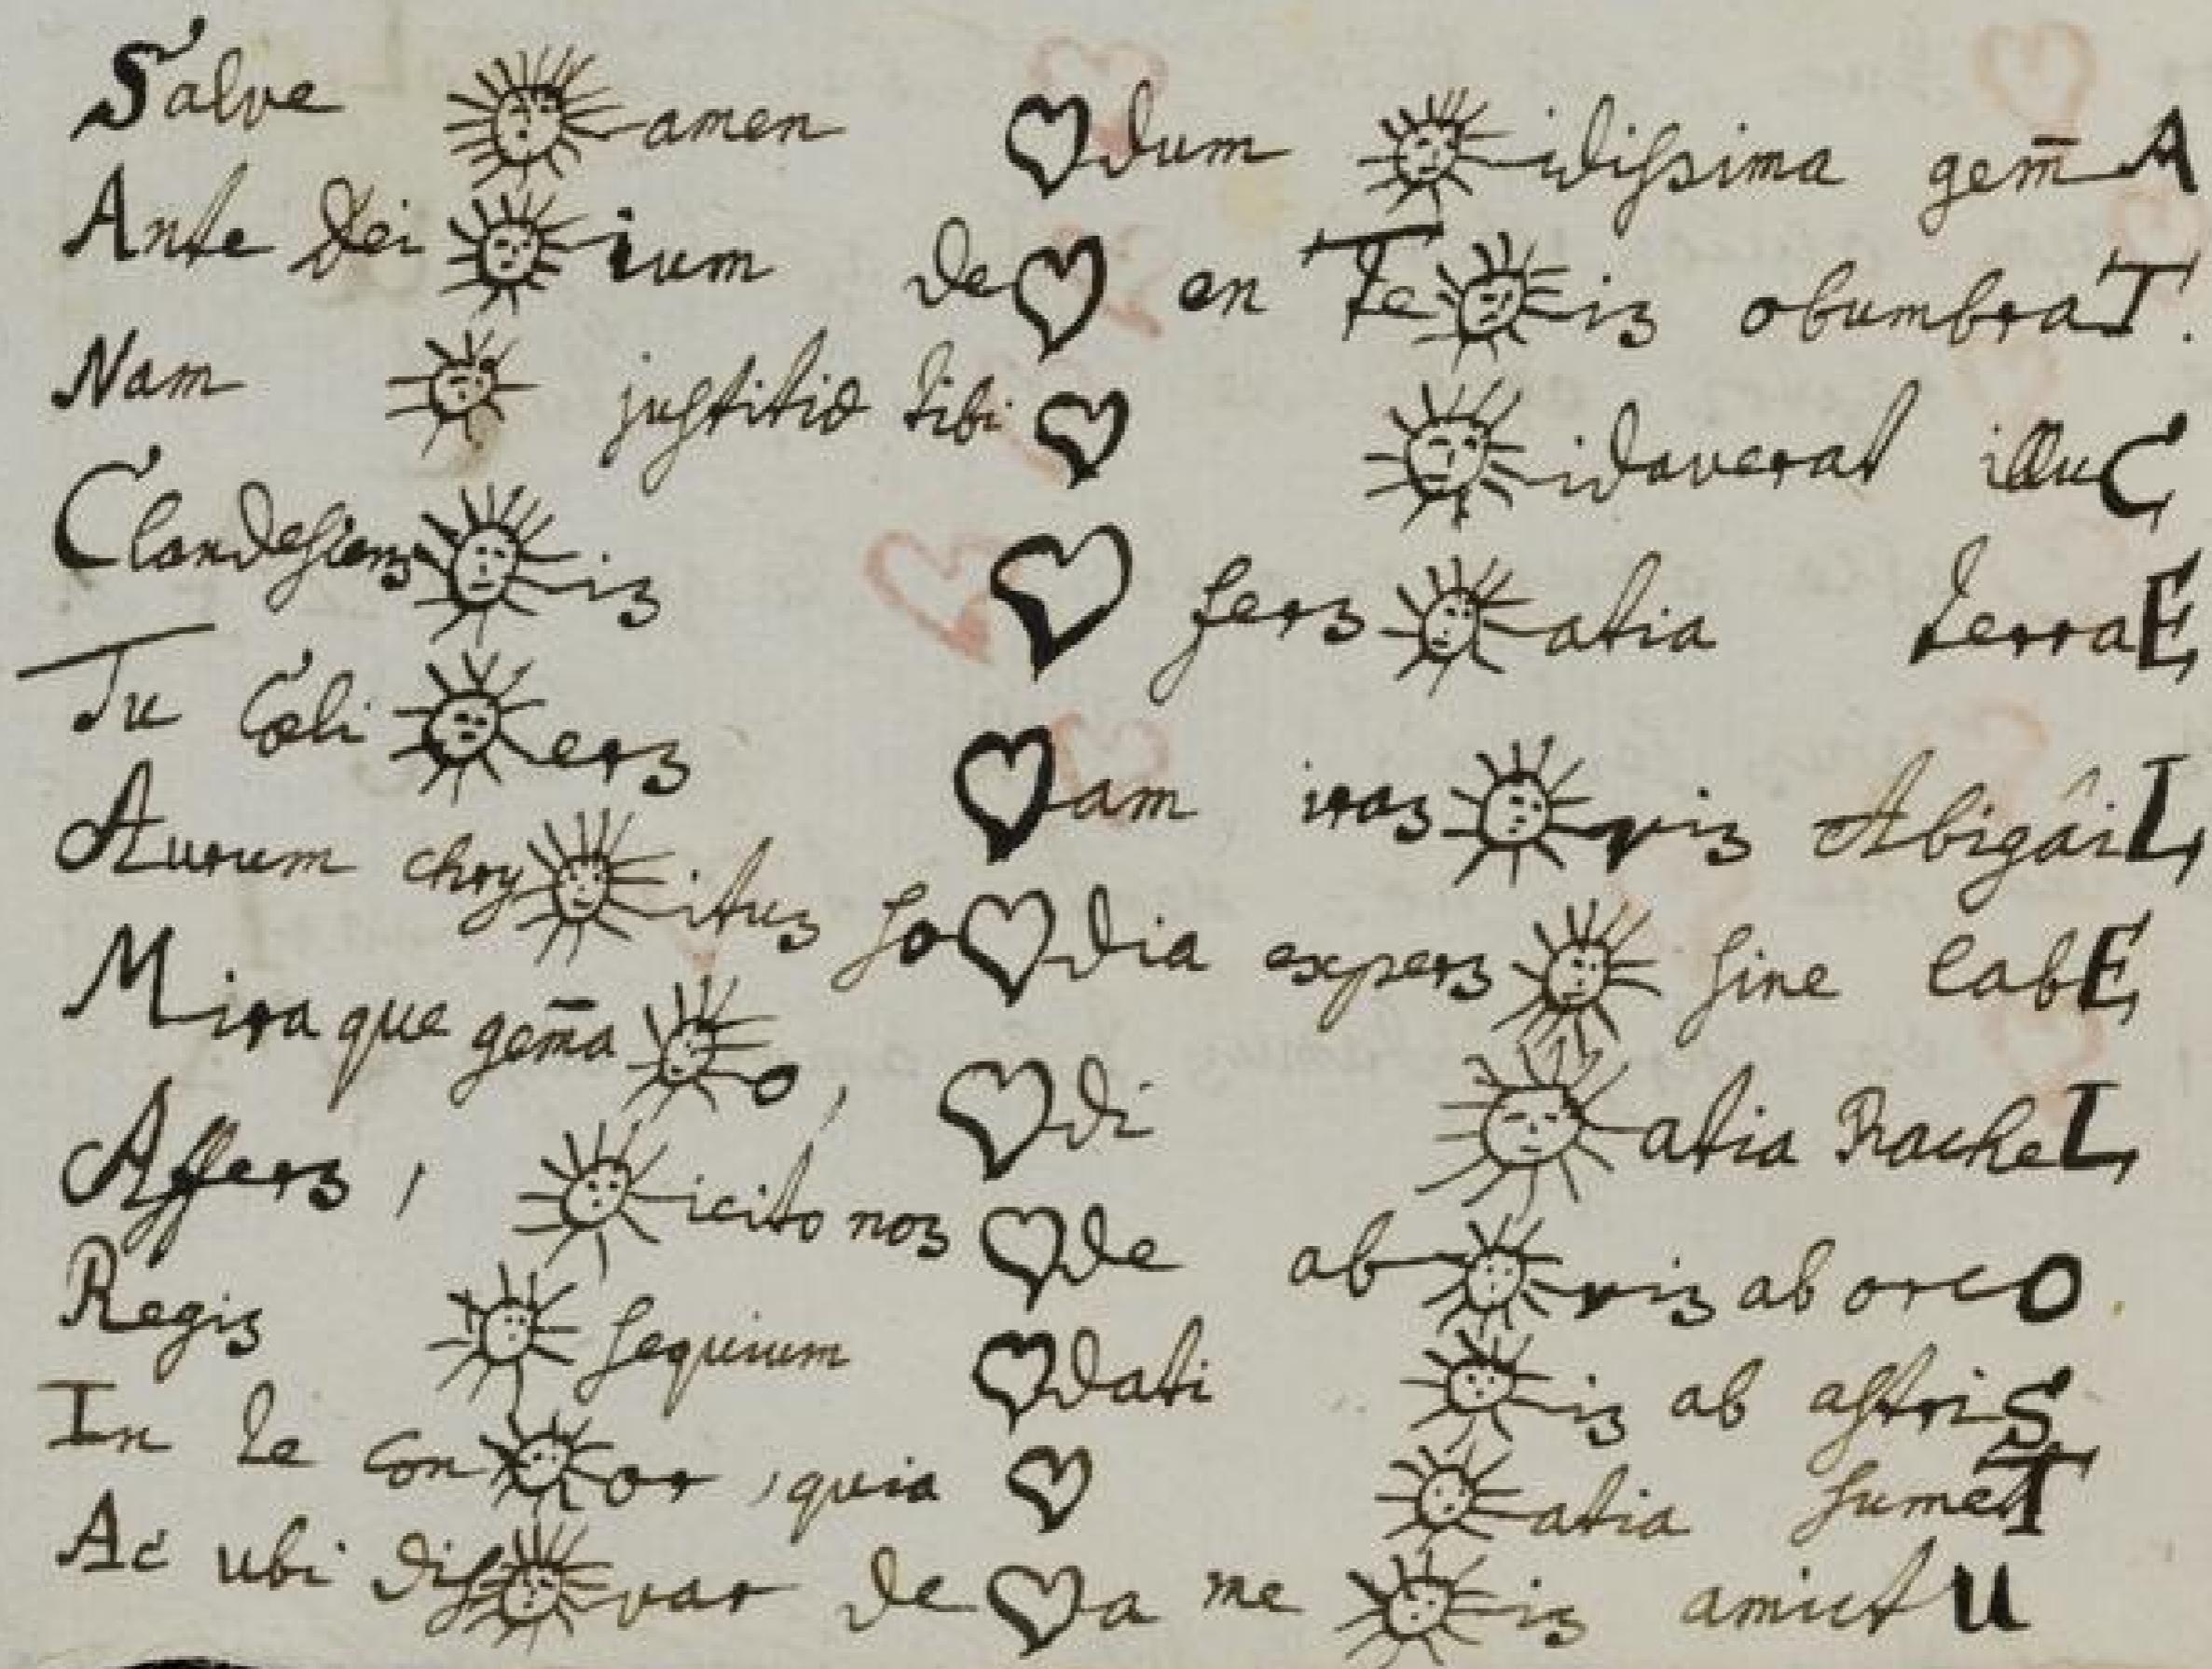 Salve ☀amen ♡dum ☀idissima gem̄A
Ante Dei ☀ium de♡ en Te☀is obumbraT.
Nam ☀ justitiæ tibi ♡ ☀idaverat illuC
☀is ♡ fers ☀atia terraE
Tu Cœli ☀ers ♡am iras ☀vis AbigâiL
Aurum chry☀itus so♡dia expers ☀ sine labE
Miraque gem̄a ☀o, ♡di ☀atia RacheL
Affers, ☀icito nos ♡de ab☀vis ab orcO
Regis ☀sequium ♡dati ☀is ab astriS
In te con☀or, quia ♡ ☀atia sumeT
Ac ubi dis☀var de♡a me ☀is amictU